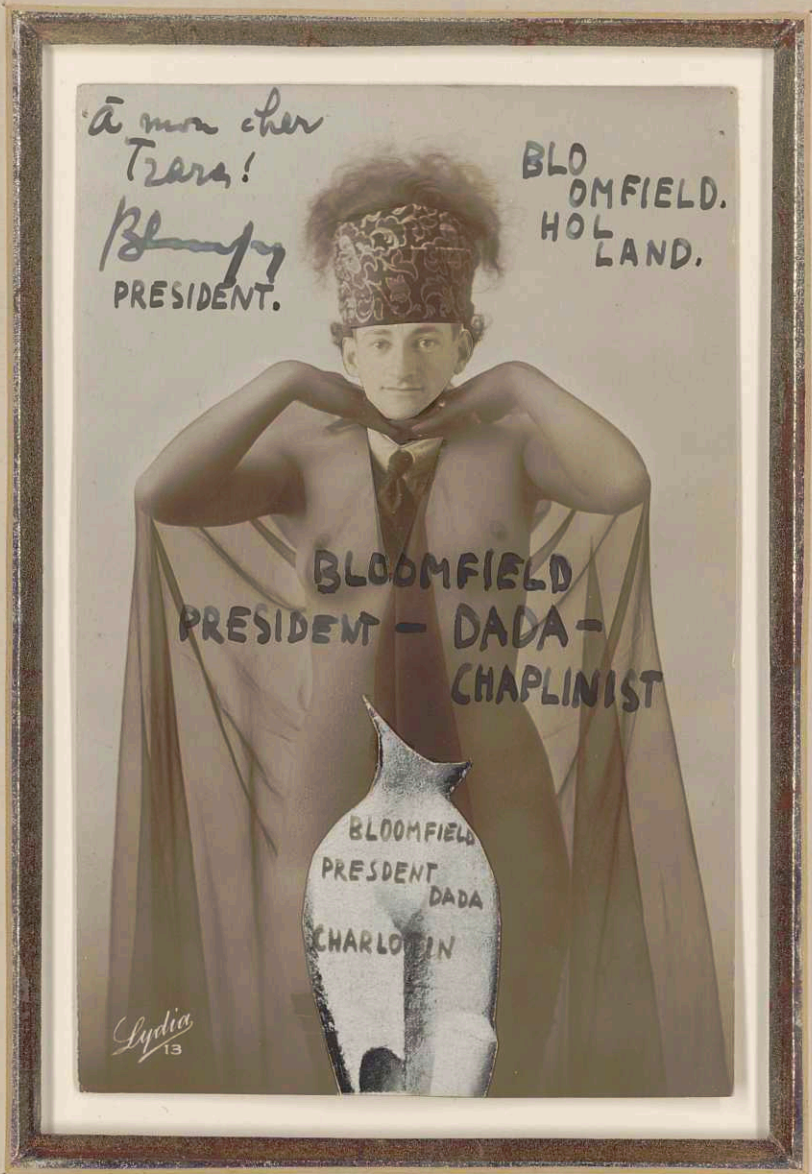 à mon cher
Tzara!
PRESIDENT.
BLO
OMFIELD.
HOL
LAND.
BLOOMFIELD
PRESIDENT — DADA —
CHAPLINIST
BLOOMFIELD
PRESDENT
DADA
CHARLOTIN
Lydia
13